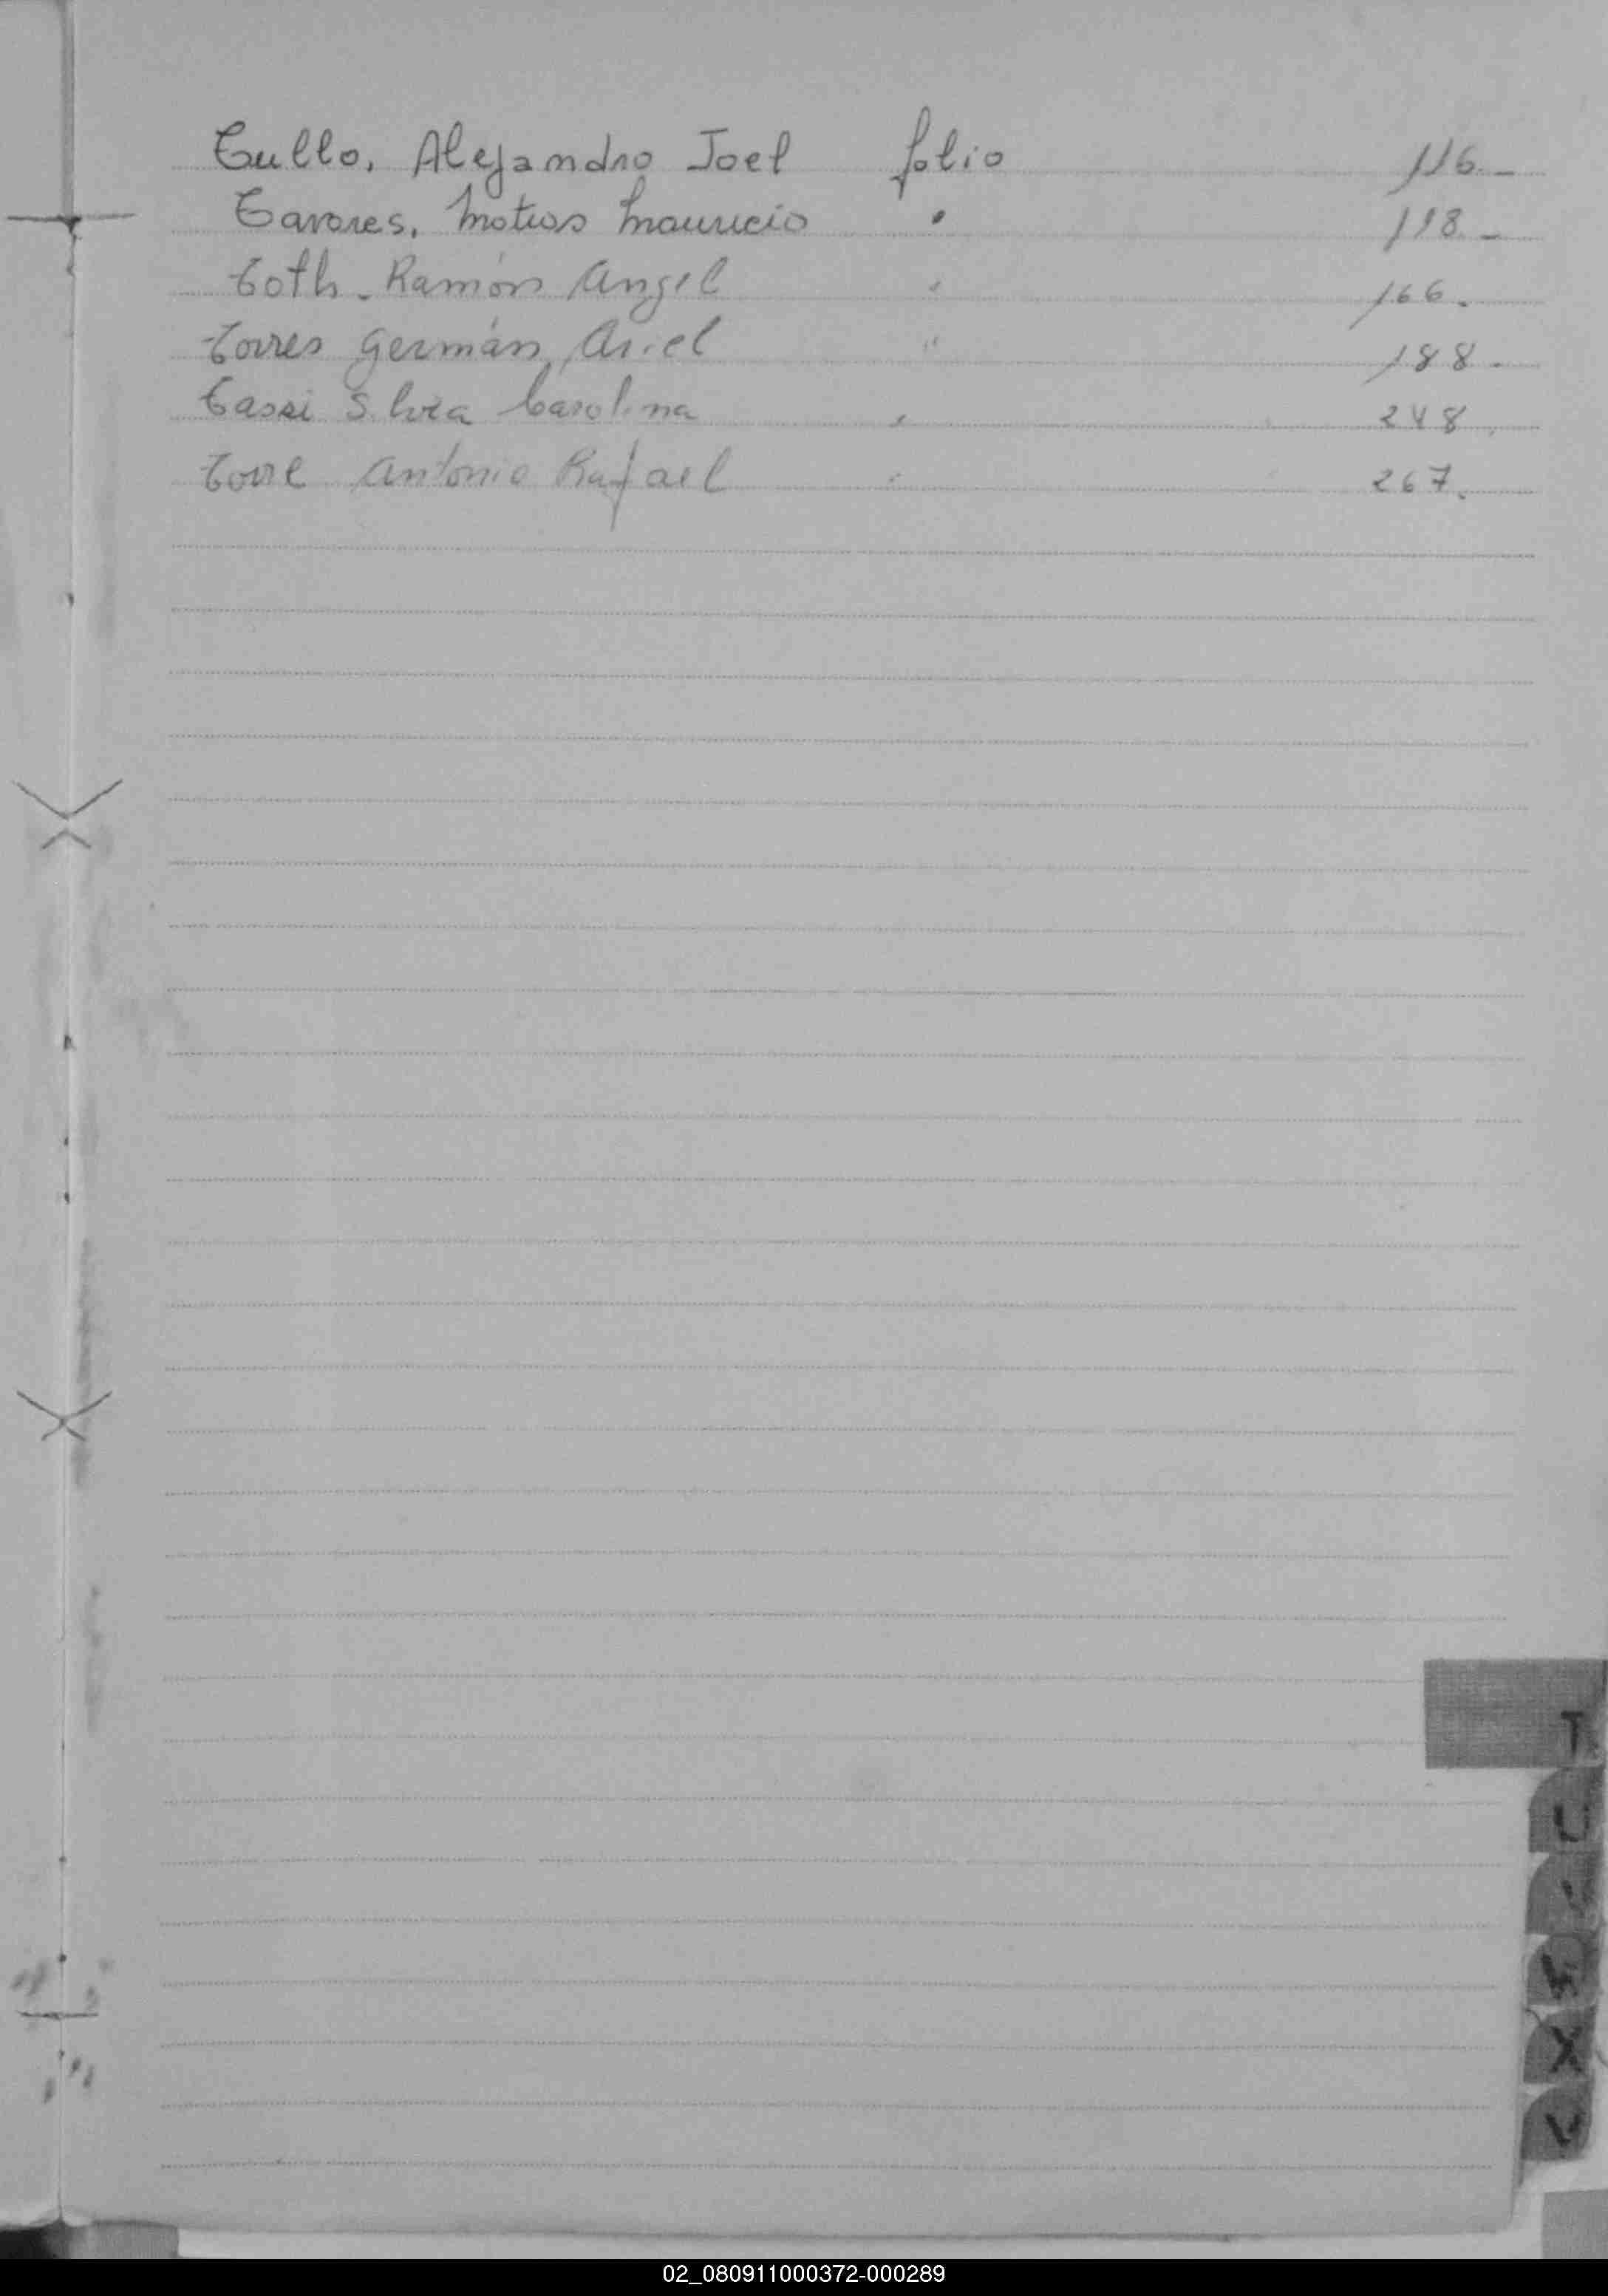 Tullo, Alejandro Joel folio 116.-
Tavares, Matias Mauricio " 118.-
Toth - Ramón Angel " 166.
Torres Germán Ariel " 188.
Tassi Silvia Carolina " 248.
Torre Antonio Rafael " 267.
T
U
V
X
Y
02_080911000372-000289